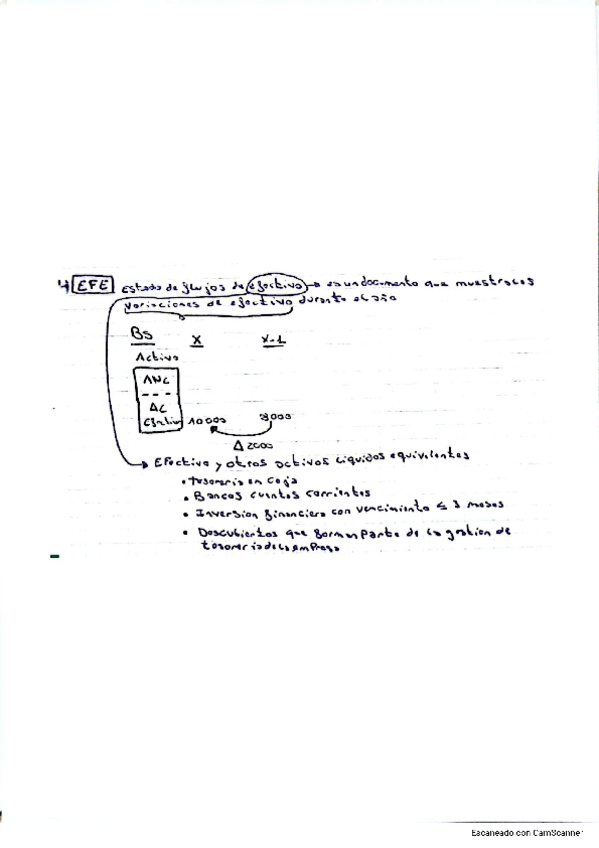 4 EFE Estado de flujos de efectivo → es un documento que muestra las
variaciones de efectivo durante el año
Bs X X-1
Activo
ANC
AC
Efectivo 10000 8000
Δ 2000
→ Efectivo y otros activos líquidos equivalentes
• Tesorería en caja
• Bancos cuentas corrientes
• Inversion financiera con vencimiento ≤ 3 meses
• Descubiertos que forman parte de la gestion de
tesoreria de la empresa
Escaneado con CamScanner